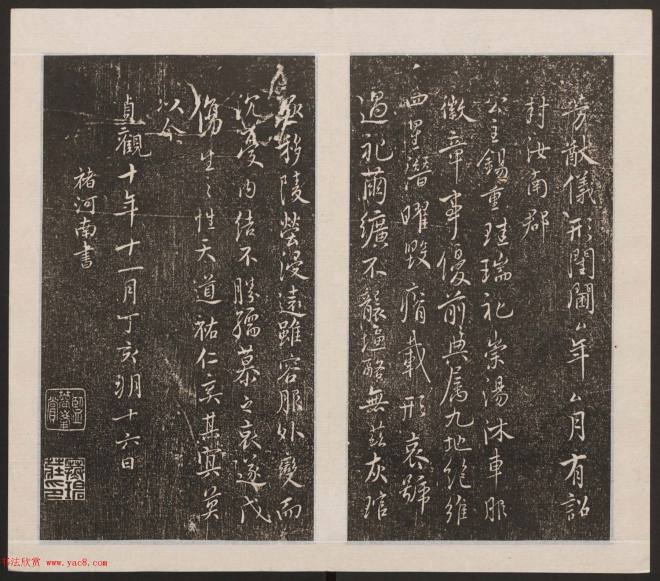 芳猷儀形閨閫厶年厶月有詔
封汝南郡
公主錫重珪瑞礼崇湯沐車服
徽章事優前典属九地絶維
四星潛曜毀瘠載形哀號
過礼繭纊不襲塩酪無兹灰琯
亟移陵塋浸遠雖容服外變而
沉憂内結不勝孺慕之哀遂成
傷生之性天道祐仁奚其冥莫
以今
貞觀十年十一月丁亥朔十六日
褚河南書
书法欣赏 www.yac8.com